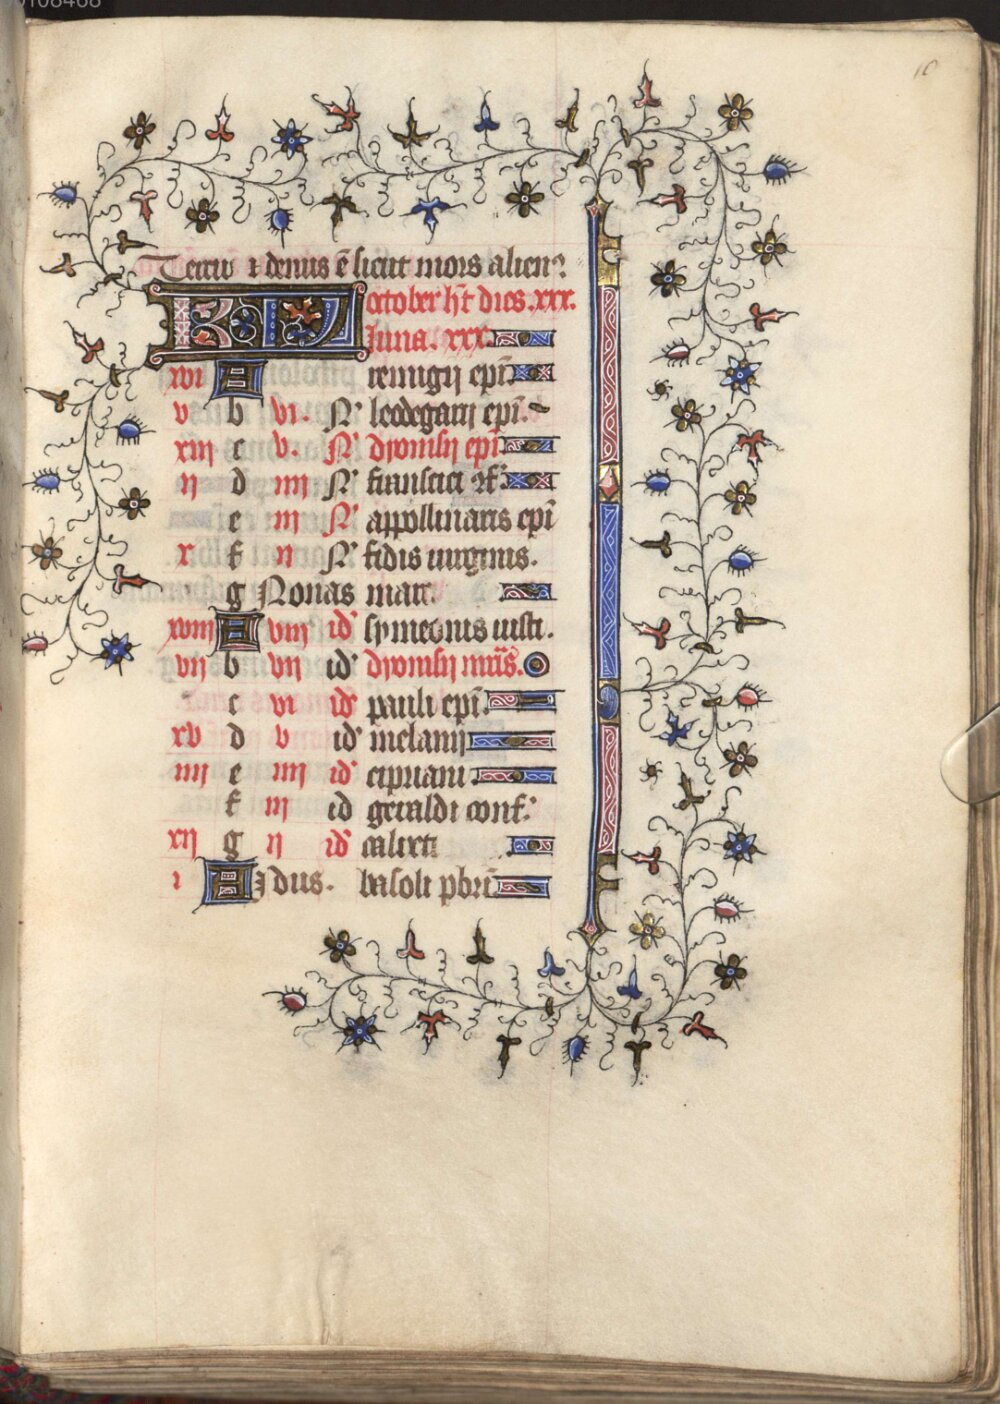 10
Terciꝰ ⁊ denus ē sicut mors alienꝰ
KL october ht̄ dies. xxx.
luna. xxx.
xvi A remigij epī
v b vi. Nꝰ leodegarij epī.
xiij c v. Nꝰ dionisij epī
ij d iiij Nꝰ francisci ⁊f
e iij Nꝰ appollinaris epī
x f ij Nꝰ fidis uirginis.
g Nonas marc.
xviij A viij idꝰ symeonis iusti.
vij b vij idꝰ dionisij mr̄is.
c vi idꝰ pauli epī
xv d v idꝰ melanij
iiij e iiij idꝰ cipriani
f iij id geraldi conf.
xij g ij idꝰ calixti
i A Idus. basoli pbrī